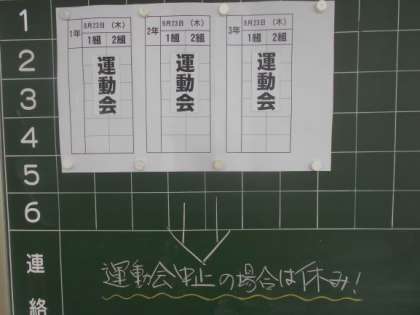 1
2
3
4
5
6
連絡
1年 9月23日 (木)
1組 2組
運動会
2年 9月23日 (木)
1組 2組
運動会
3年 9月23日 (木)
1組 2組
運動会
運動会中止の場合は休み!